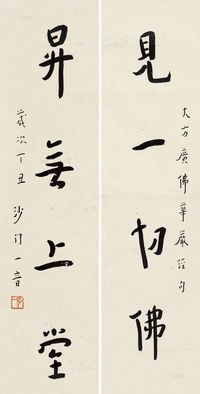 大方廣佛華嚴經句
見一切佛
昇無上堂
歲次丁丑 沙門一音